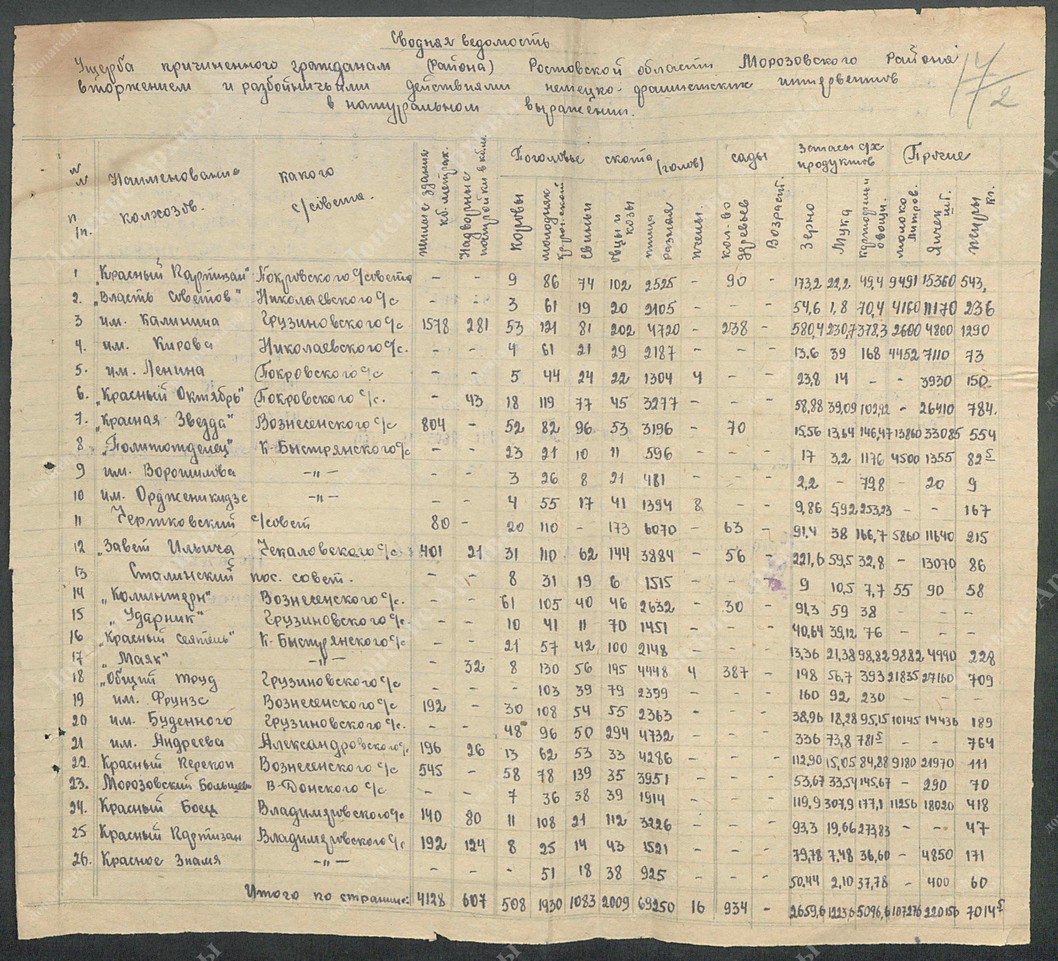 Сводная ведомость
Ущерба причиненного гражданам (Района) Ростовской области Морозовского Района
вторжением и разбойничьими действиями немецко-фашистских интервентов
в натуральном выражении.
17/2
№ № п/п. Наименование колхозов. какого с/совета. Жилые здания кв. метрах. Надворные постройки в кв.м Поголовье скота (голов) сады Запасы с/х продуктов Прочие
Коровы молодняк свиньи овцы и козы птица разная пчелы. кол-во деревьев Возраст. Зерно Мука картофель и овощи. молоко литров. Яичек шт. Жиры кг.
1 "Красный Партизан" Покровского с/совета - - 9 86 74 102 2525 - 90 - 173,2 22,2 49,4 9491 15360 543,
2. "Власть Советов" Николаевского с/с - - 3 61 19 20 2105 - - - 54,6 1,8 70,4 4160 11170 236
3 им. Калинина Грузиновского с/с 1578 281 53 121 81 202 4720 - 238 - 580,4 230,7 378,3 2600 4800 1290
4. им. Кирова Николаевского с/с. - - 4 61 21 29 2187 - - - 13,6 39 168 4452 7110 73
5. им. Ленина Покровского с/с - - 5 44 24 22 1304 4 - - 23,8 14 - - 3930 150
6. "Красный Октябрь" Покровского с/с. - 43 18 119 77 45 3277 - - - 58,88 39,09 102,12 - 26410 784.
7. "Красная Звезда" Вознесенского с/с 804 - 52 82 96 53 3196 - 70 - 15,56 13,64 146,47 13860 33085 554
8 "Политотделец" К-Быстрянского с/с - - 23 21 10 11 596 - - - 17 3,2 1176 4500 1355 82⁵
9 им. Ворошилова -"- - - 3 26 8 21 481 - - - 2,2 - 79,8 - 20 9
10 им. Орджоникидзе -"- - - 4 55 17 41 1394 8 - - 9,86 5,92 253,23 - - 167
11 Чертковский с/совет 80 - 20 110 - 173 6070 - 63 - 91,4 38 166,7 5860 11640 815
12 "Завет Ильича" Чекаловского с/с 401 21 31 110 62 144 3884 - 56 - 221,6 59,5 32,8 - 13070 86
13 Сталинский пос. совет. - - 8 31 19 6 1515 - - 9 10,5 7,7 55 90 58
14 "Коминтерн" Вознесенского с/с. - - 61 105 40 46 2632 - 30 - 91,3 59 38 - - -
15 "Ударник" Грузиновского с/с. - - 10 41 11 70 1451 - - - 40,64 39,12 76 - - -
16 "Красный сеятель" К-Быстрянского с/с - - 21 57 42 100 2148 - - - 13,36 21,38 98,82 9882 4990 228
17 "Маяк" -"- - 32 8 130 56 195 4448 4 387 - 198 56,7 393 21835 27160 709
18 "Общий труд Грузиновского с/с - - - 103 39 79 2399 - - - 160 92 230 - - -
19 им. Фрунзе Вознесенского с/с 192 - 30 108 54 55 2363 - - - 38,96 18,28 95,15 10145 14436 189
20 им. Буденного Грузиновского с/с. - - 48 96 50 294 4732 - - - 336 73,8 781⁵ - - 764
21 им. Андреева Александровского с/с 196 26 13 62 53 33 4286 - - - 112,90 15,05 84,88 9180 21970 111
22. Красный Перекоп Вознесенского с/с 545 - 58 78 139 35 3951 - - - 53,67 33,54 145,67 - 290 70
23. Морозовский Большевик В-Донского с/с - - 7 36 38 39 1914 - - - 119,9 307,9 177,1 11256 18020 418
24. Красный Боец Владимировского с/с 140 80 11 108 21 112 3226 - - - 93,3 19,66 273,83 - - 47
25 Красный Партизан Владимировского с/с 192 124 8 25 14 43 1521 - - - 79,78 7,48 36,60 - 4850 171
26. Красное Знамя -"- - - - 51 18 38 925 - - - 50,44 2,10 37,78 - 400 60
Итого по странице: 4128 607 508 1930 1083 2009 69250 16 934 - 2659,6 1223,6 5096,6 107276 220156 7014⁵